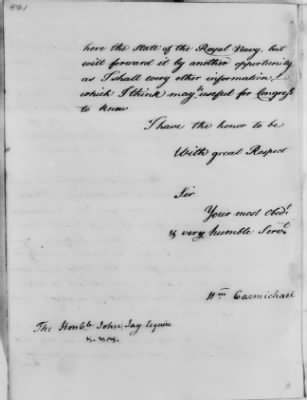 here the State of the Royal Navy, but
will forward it by another opportunity
as I shall every other information,
which I think may useful for Congress
to know
I have the honor to be
With great Respect
Sir
Your most Obedt
& very humble Servt
Wm Carmichael
The Honble John Jay Esquire